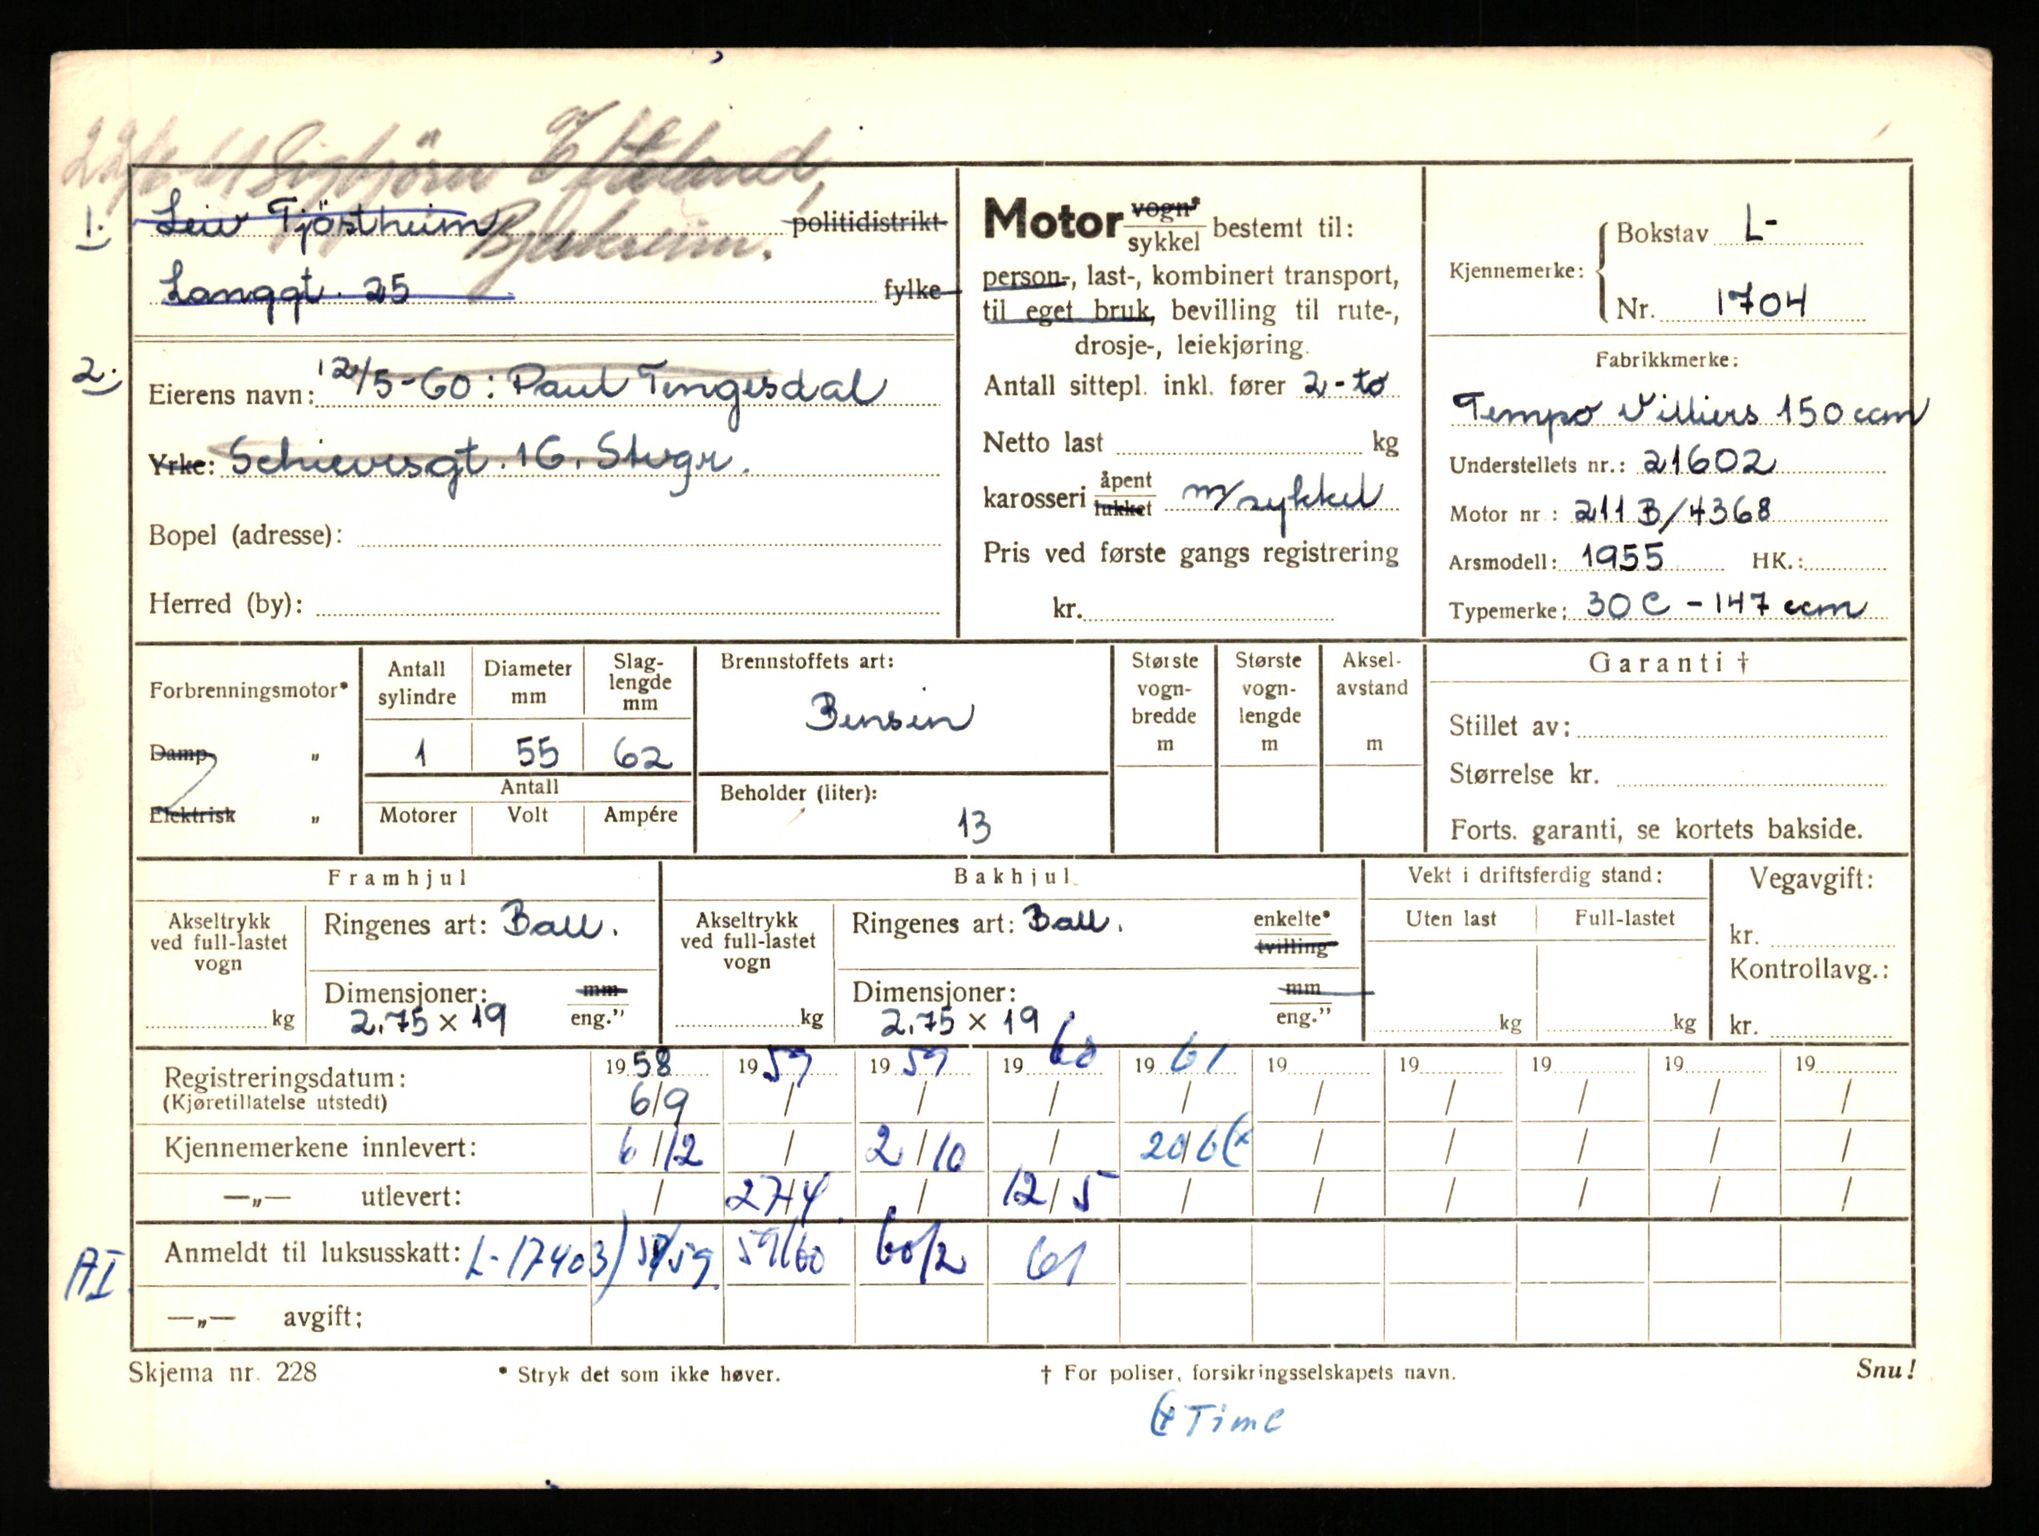 22/6-61 Sigbjörn Efteland,
Bjerkreim.
1. Leiv Tjöstheim politidistrikt
Langgt. 25 fylke
2. Eierens navn: 12/5-60: Paul Tengesdal
Yrke: Schievesgt. 16. Stvgr.
Bopel (adresse):
Herred (by):
Motor vogn* sykkel bestemt til:
person-, last-, kombinert transport,
til eget bruk, bevilling til rute-,
drosje-, leiekjøring.
Antall sittepl. inkl. fører 2-to
Netto last kg
karosseri åpent lukket m/sykkel
Pris ved første gangs registrering
kr.
Kjennemerke: Bokstav L-
Nr. 1704
Fabrikkmerke:
Tempo Villiers 150 ccm
Understellets nr.: 21602
Motor nr: 211B/4368
Arsmodell: 1955 HK.:
Typemerke: 30 C - 147 ccm
Forbrenningsmotor*
Damp "
Elektrisk "
Antall sylindre
Diameter mm
Slaglengde mm
1 55 62
Antall
Motorer Volt Ampére
Brennstoffets art:
Bensin
Beholder (liter):
13
Største vognbredde m
Største vognlengde m
Akselavstand m
Garanti †
Stillet av:
Størrelse kr.
Forts. garanti, se kortets bakside.
Framhjul
Akseltrykk ved full-lastet vogn
kg
Ringenes art: Ball.
Dimensjoner: mm
2.75 x 19 eng."
Bakhjul
Akseltrykk ved full-lastet vogn
kg
Ringenes art: Ball. enkelte* tvilling
Dimensjoner: mm
2.75 x 19 eng."
Vekt i driftsferdig stand:
Uten last Full-lastet
kg kg
Vegavgift:
kr.
Kontrollavg.:
kr.
Registreringsdatum: 1958 1959 1959 1960 1961 19 19 19 19 19
(Kjøretillatelse utstedt) 6/9 / / / / / / / / /
Kjennemerkene innlevert: 6/12 / 2/10 / 20/6 (x / / / / /
—„— utlevert: / 27/4 / 12/5 / / / / / /
AI. Anmeldt til luksusskatt: L-17403) 58/59 59/60 60/2 61
—„— avgift:
Skjema nr. 228 * Stryk det som ikke høver. † For poliser, forsikringsselskapets navn. Snu!
(x Time